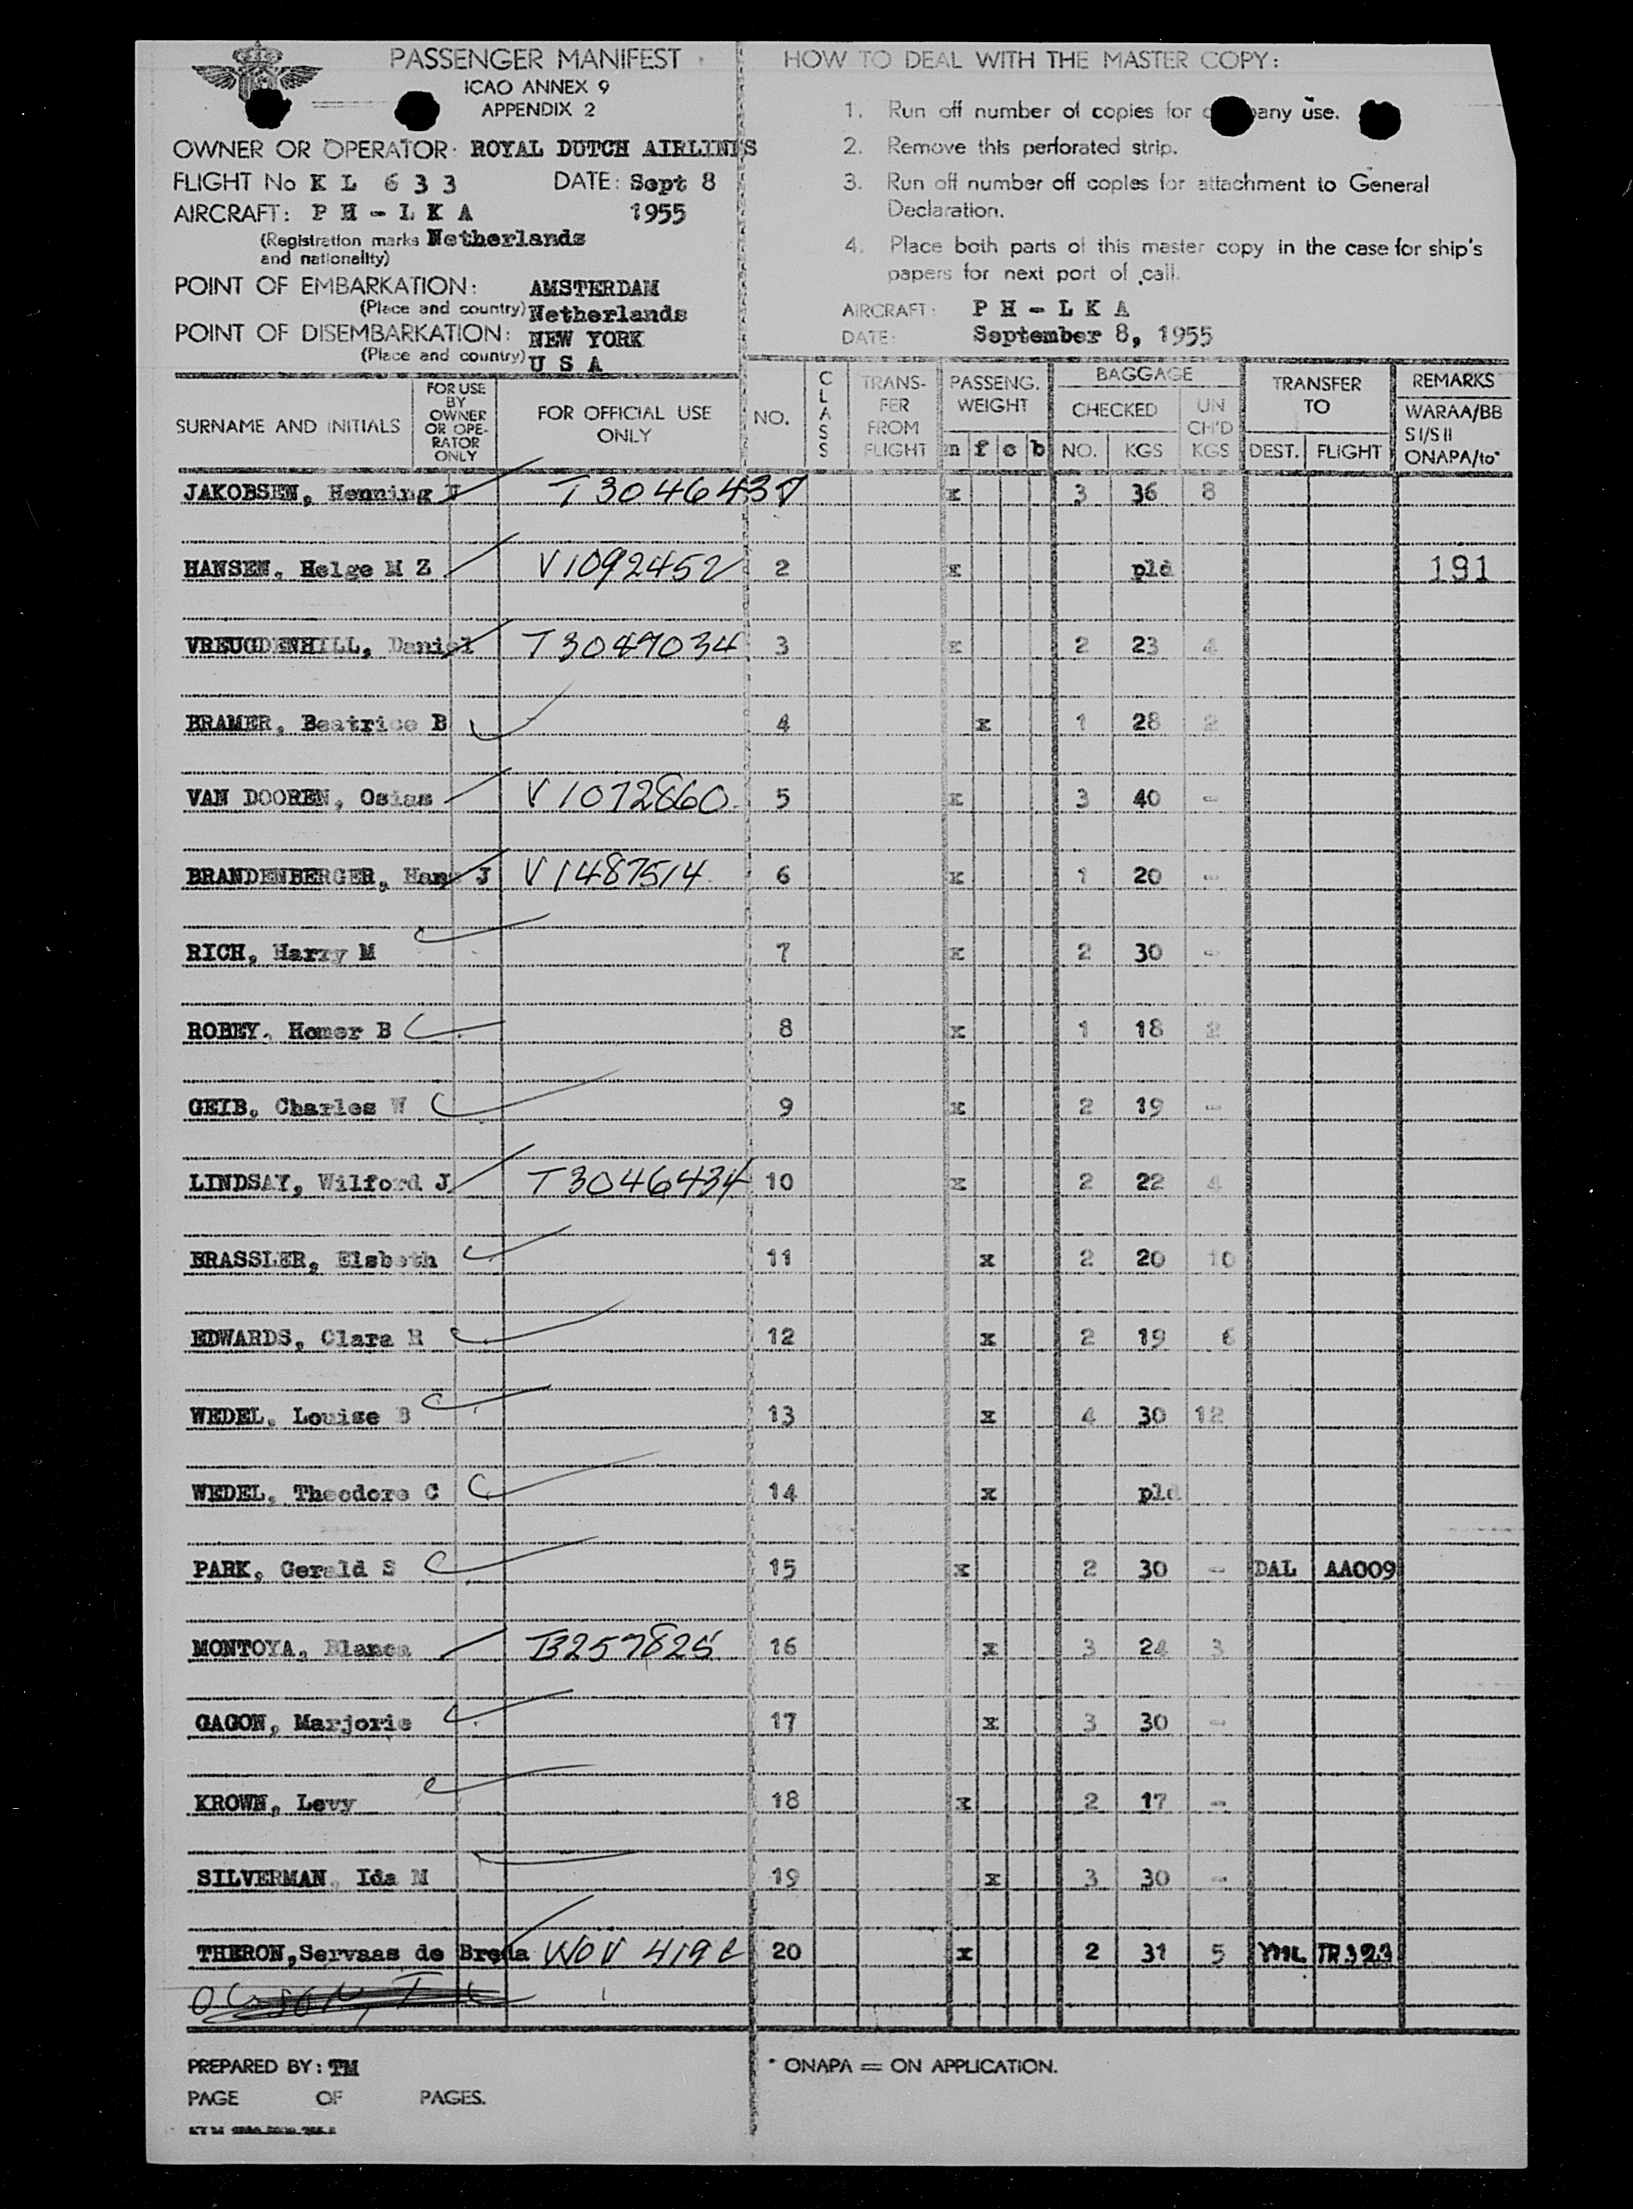 PASSENGER MANIFEST
ICAO ANNEX 9
APPENDIX 2
OWNER OR OPERATOR: ROYAL DUTCH AIRLINES
FLIGHT No K L 6 3 3 DATE: Sept 8
AIRCRAFT: P H - L K A 1955
(Registration marks Netherlands
and nationality)
POINT OF EMBARKATION: AMSTERDAM
(Place and country) Netherlands
POINT OF DISEMBARKATION: NEW YORK
(Place and country) U S A
HOW TO DEAL WITH THE MASTER COPY:
1. Run off number of copies for company use.
2. Remove this perforated strip.
3. Run off number off copies for attachment to General
Declaration.
4. Place both parts of this master copy in the case for ship's
papers for next port of call.
AIRCRAFT: P H - L K A
DATE: September 8, 1955
SURNAME AND INITIALS FOR USE BY OWNER OR OPE- RATOR ONLY FOR OFFICIAL USE ONLY NO. CLASS TRANS- FER FROM FLIGHT PASSENG. WEIGHT n f c b BAGGAGE CHECKED NO. KGS UN CH'D KGS TRANSFER TO DEST. FLIGHT REMARKS WARAA/BB S I/S II ONAPA/to*
JAKOBSEN, Henning T3046437 x 3 36 8
HANSEN, Helge M Z V1092452 2 x pld 191
VREUGDENHILL, Daniel T3047034 3 x 2 23 4
BRAMER, Beatrice B 4 x 1 28 2
VAN DOOREN, Osias V1072860 5 x 3 40 -
BRANDENBERGER, Hans J V1487514 6 x 1 20 -
RICH, Harry M 7 x 2 30 -
ROBEY, Homer B 8 x 1 18 2
GEIB, Charles W 9 x 2 19 -
LINDSAY, Wilford J T3046434 10 x 2 22 4
BRASSLER, Elsbeth 11 x 2 20 10
EDWARDS, Clara R 12 x 2 19 6
WEDEL, Louise B 13 x 4 30 12
WEDEL, Theodore C 14 x pld
PARK, Gerald S 15 x 2 30 - DAL AA009
MONTOYA, Blanca B257825 16 x 3 24 3
GAGON, Marjorie 17 x 3 30 -
KROWN, Levy 18 x 2 17 -
SILVERMAN, Ida M 19 x 3 30 -
THERON, Servaas de Breda 20 x 2 31 5 YML TR323
PREPARED BY: TM
PAGE OF PAGES.
* ONAPA = ON APPLICATION.